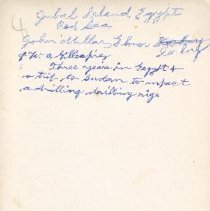 Jubal Island Egypt
Red Sea
John Millar, Elinor
& a Gillespie
Three years in Egypt &
a trip to Sudan to inspect
a drilling drilling rigs